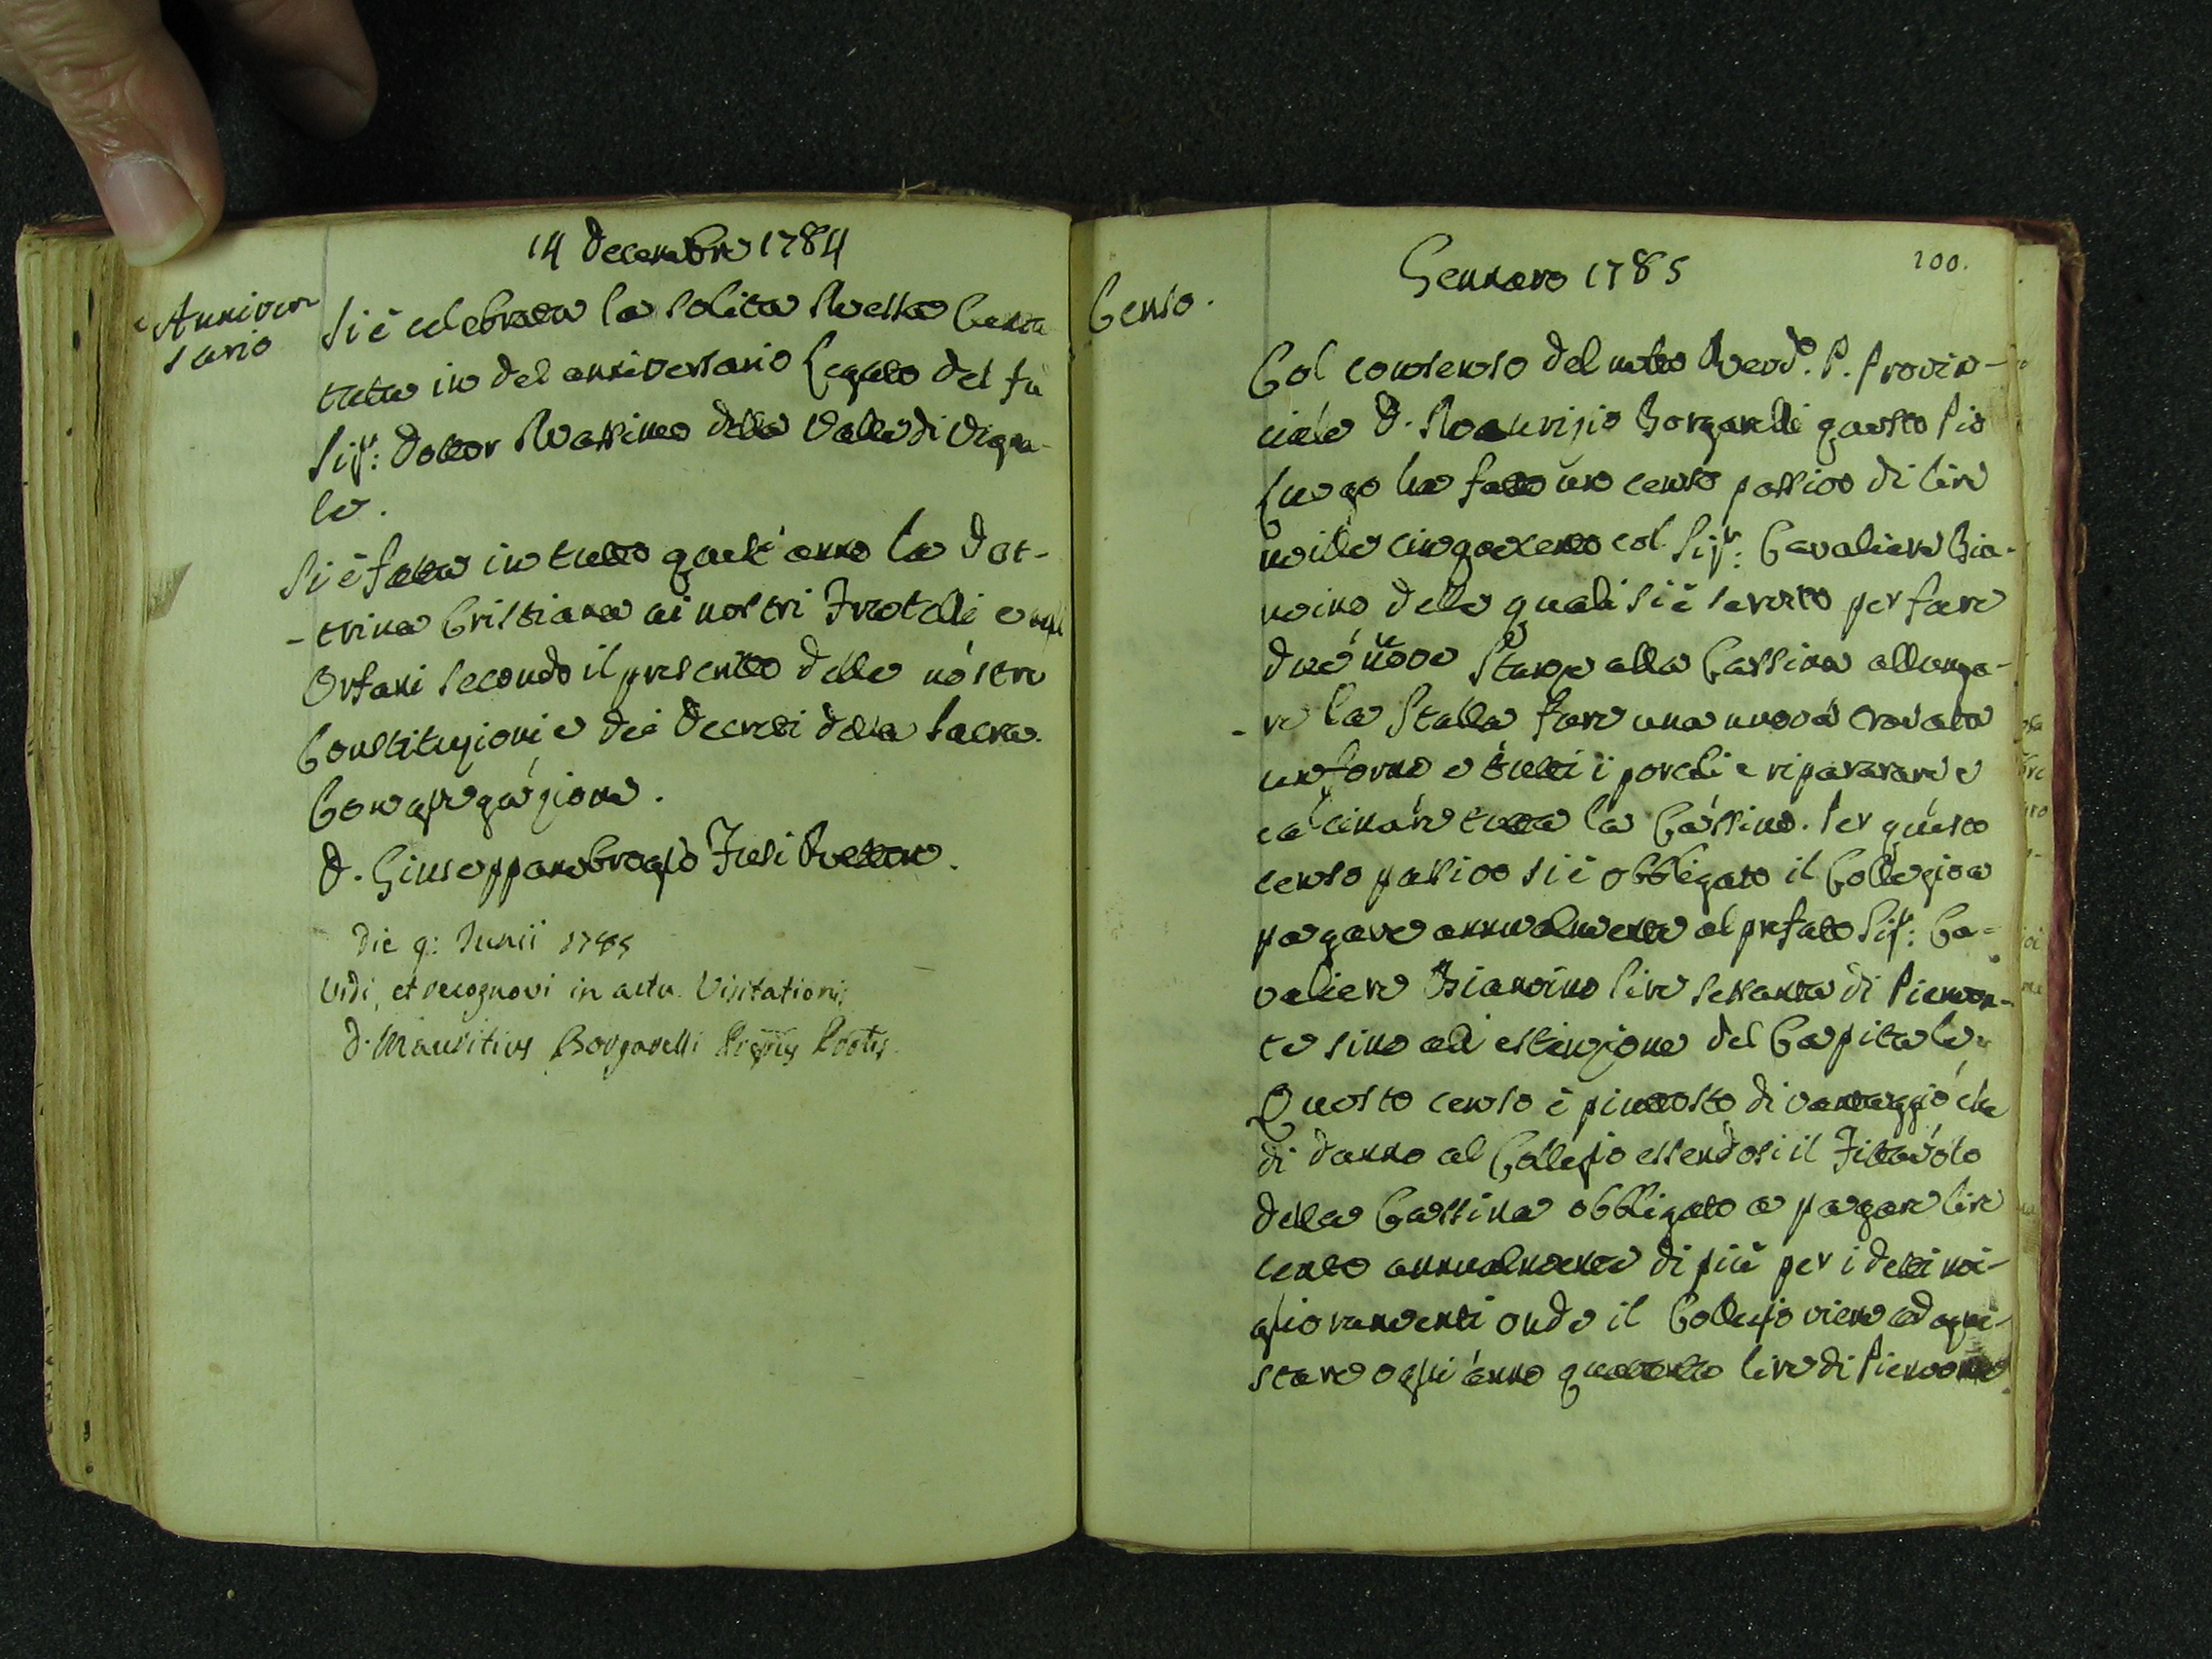 14 Decembre 1784
Anniver
sario
Si è celebrata la solita Messa Canta
tata in del anniversario Legato del fù
Sig.r: Dottor Massimo della Valle di Vigna-
le.
Si è fatta in tutto quest'anno la Dot-
-trina Cristiana ai nostri Fratelli e agli
Orfani secondo il prescritto delle nostre
Constituzioni e dei Decreti della Sacra
Congregazione.
D. Giuseppambrogio Fusi Rettore.
Die 9: Junii 1785
Vidi, et recognovi in actu Visitationis
D. Mauritius Borgarelli
Gennaro 1785
100.
Censo.
Col consenso del molto Revdo. P. Provin-
ciale D. Maurizio Borgarelli questo Pio
Luogo ha fatto uno censo passivo di lire
mille cinquecento col Sig.r: Cavaliere Bia-
nino delle quali si è servito per fare
due nuove Stanze alla Cassina allunga-
-re la Stalla fare una nuova crovata
un forno e tutti i porcili e ripararare e
calcinare tutta la Cassina. Per questo
censo passivo si è obbligato il Collegio a
pagare annualmente al prefato Sig.r: Ca-
valiere Biandino lire sessanta di Piemon-
te sino all'estinzione del Capitale.
Questo censo è piuttosto di vantaggio che
di danno al Collegio essendosi il Fittavolo
della Cassina obbligato a pagare lire
cento annualmente di più per i detti mi-
glioramenti onde il Collegio viene ad aqui-
stare ogni anno quaranta lire di Piemonte.